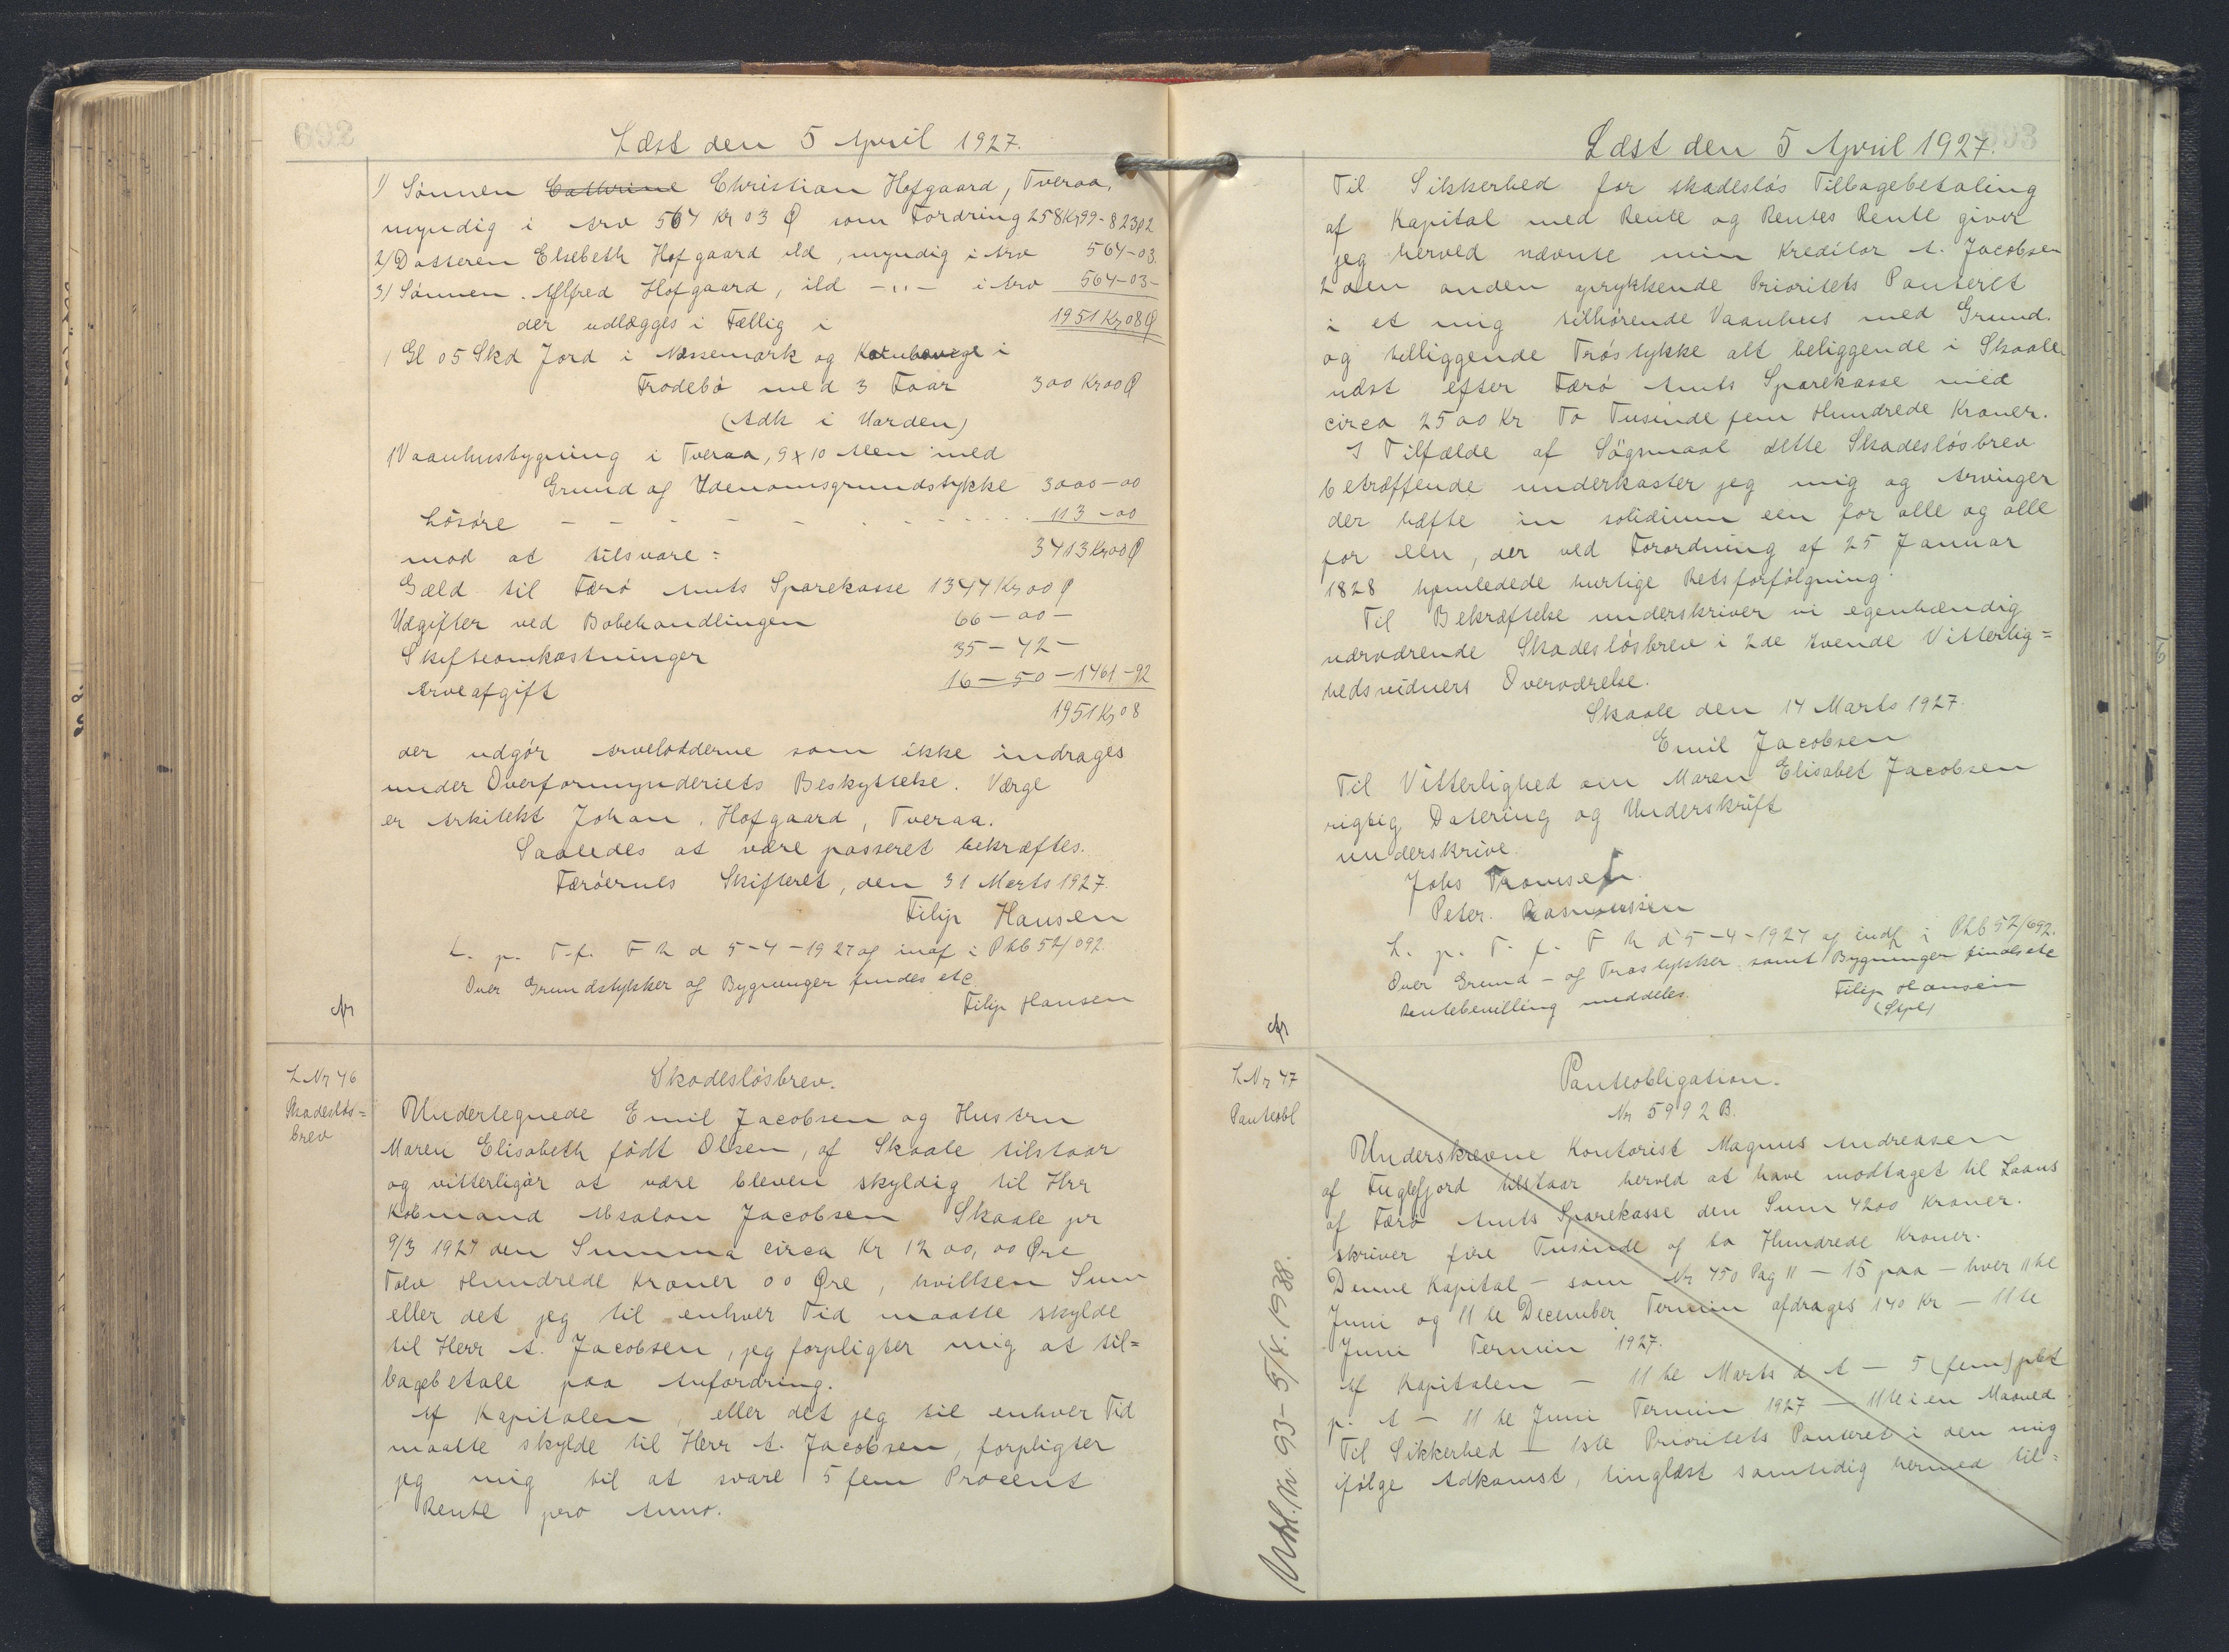 692
Læst den 5 April 1927.
1) Sønnen Cathrine Christian Hofgaard, Tveraa,
myndig i Arv 564 Kr 03 Ø som Fordring 258 Kr 99 - 823 02
2) Datteren Elsebeth Hofgaard ild, myndig i Arv 564-03.
3) Sønnen. Alfred Hofgaard, ild -"- i Arv 564-03-
der udlægges i Fællig i 1951 Kr 08 Ø
1 Gl 05 Skd Jord i Næssemark og i
Frodebø med 3 Faar 300 Kr 00 Ø
(Adk i Orden)
1 Vaanhusbygning i Tveraa, 9 x 10 Alen med
Grund og Udenomsgrundstykke 3000-00
Løsøre - - - - - - - - 113-00
mod at tilsvare: 3413 Kr 00 Ø
Gæld til Færø Amts Sparekasse 1344 Kr 00 Ø
Udgifter ved Bobehandlingen 66-00-
Skifteomkostninger 35-42-
Arveafgift 16-50-1461-92
1951 Kr 08
der udgør Arvelodderne som ikke indrages
under Overformynderiets Beskyttelse. Værge
er Arkitekt Johan. Hofgaard, Tveraa.
Saaledes at være passeret bekræftes.
Færøernes Skifteret, den 31 Marts 1927.
Filip Hansen
L. p. T. f. F R d 5-4-1927 og indf i Phb 52/692.
Over Grundstykker og Bygninger findes etc
Filip Hansen
L Nr 46
Skadesløs=
brev
Skadesløsbrev.
Undertegnede Emil Jacobsen og Hustru
Maren Elisabeth født Olsen, af Skaale tilstaar
og vitterligør at være bleven skyldig til Hrr
Købmand Absalon Jacobsen Skaale pr
9/3 1927 den Summa circa Kr 1200,00 Øre
Tolv Hundrede Kroner 00 Øre, hvilken Sum
eller det jeg til enhver Tid maatte skylde
til Herr A. Jacobsen, jeg forpligter mig at til=
bagebetale paa Anfordring.
Af Kapitalen, eller det jeg til enhver Tid
maatte skylde til Herr A. Jacobsen, forpligter
jeg mig til at svare 5 fem Procent
Rente pro Anno.
693
Læst den 5 April 1927.
Til Sikkerhed for skadesløs Tilbagebetaling
af Kapital med Rente og Rentes Rente giver
jeg herved nævnte min Kreditor A. Jacobsen
2den anden oprykkende Prioritets Panteret
i et mig tilhørende Vaanhus med Grund.
og tilliggende Trøstykke alt beliggende i Skaale.
næst efter Færø Amts Sparekasse med
circa 2500 Kr To Tusinde fem Hundrede Kroner.
I Tilfælde af Søgsmaal dette Skadesløsbrev
betræffende underkaster jeg mig og Arvinger
der hæfte in solidium een for alle og alle
for een, der ved Forordning af 25 Januar
1828 hjemledede hurtige Retsforfølgning.
Til Bekræftelse underskriver vi egenhændig
nærværende Skadesløsbrev i 2de tvende Vitterlig=
hedsvidners Overværelse.
Skaale den 14 Marts 1927.
Emil Jacobsen
Til Vitterlighed om Maren Elisabet Jacobsen
rigtig Datering og Underskrift
underskrive.
Johs Thomsen.
Peter. Rasmussen
L. p. T. f. F R d 5-4-1927 og indf i Phb 52/692.
Over Grund- og Trøstykker samt Bygninger findes etc
Rentebevilling meddeles.
Filip Hansen
L Nr 47
Panteobl
Panteobligation.
Nr 5992 B.
Underskrevne Kontorist Magnus Andreasen
af Fuglefjord tilstaar herved at have modtaget til Laans
af Færø Amts Sparekasse den Sum 4200 Kroner.
skriver fire Tusinde og to Hundrede Kroner.
Denne Kapital - som Nr 450 Pag 11 - 15 paa - hver 11te
Juni og 11te December Termin afdrages 140 Kr - 11te
Juni Termin 1927.
Af Kapitalen - 11te Marts d A - 5 (fem) pCt
p. A - 11te Juni Termin 1927 - 11te i en Maaned
Til Sikkerhed - 1ste Prioritets Panteret i den mig
ifølge Adkomst, tinglæst samtidig hermed til=
Udsl. Nr. 93 - 5/4. 1938.